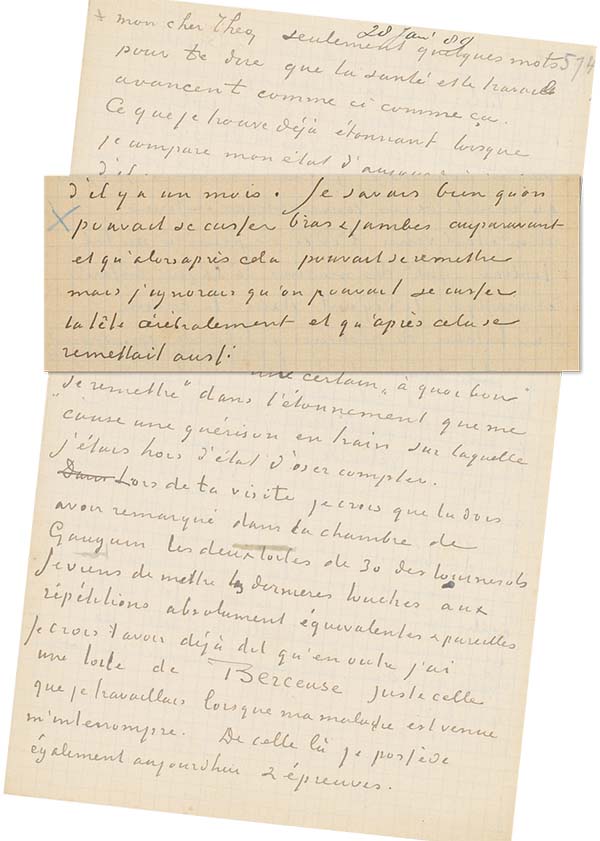 28 Janv 89
mon cher Theo, seulement quelques mots 574
pour te dire que la santé et le travail
avancent comme ci comme ça.
Ce que je trouve déjà étonnant lorsque
je compare mon état d'aujourd'hui
d'il y a un mois. Je savais bien qu'on
pouvait se casser bras & jambes auparavant
et qu'alors après cela pouvait se remettre
mais j'ignorais qu'on pouvait se casser
la tête cérébralement et qu'après cela se
remettait aussi
une certain „à quoi bon
se remettre” dans l'étonnement que me
cause une guérison en train sur laquelle
j'étais hors d'état d'oser compter.
Dans Lors de ta visite je crois que tu dois
avoir remarqué dans la chambre de
Gauguin les deux toiles de 30 des tournesols
Je viens de mettre les dernieres touches aux
répétitions absolument équivalentes & pareilles
je crois t'avoir déjà dit qu'en outre j'ai
une toile de Berceuse juste celle
que je travaillais lorsque ma maladie est venue
m'interrompre. De celle là je possède
également aujourdhui 2 épreuves.